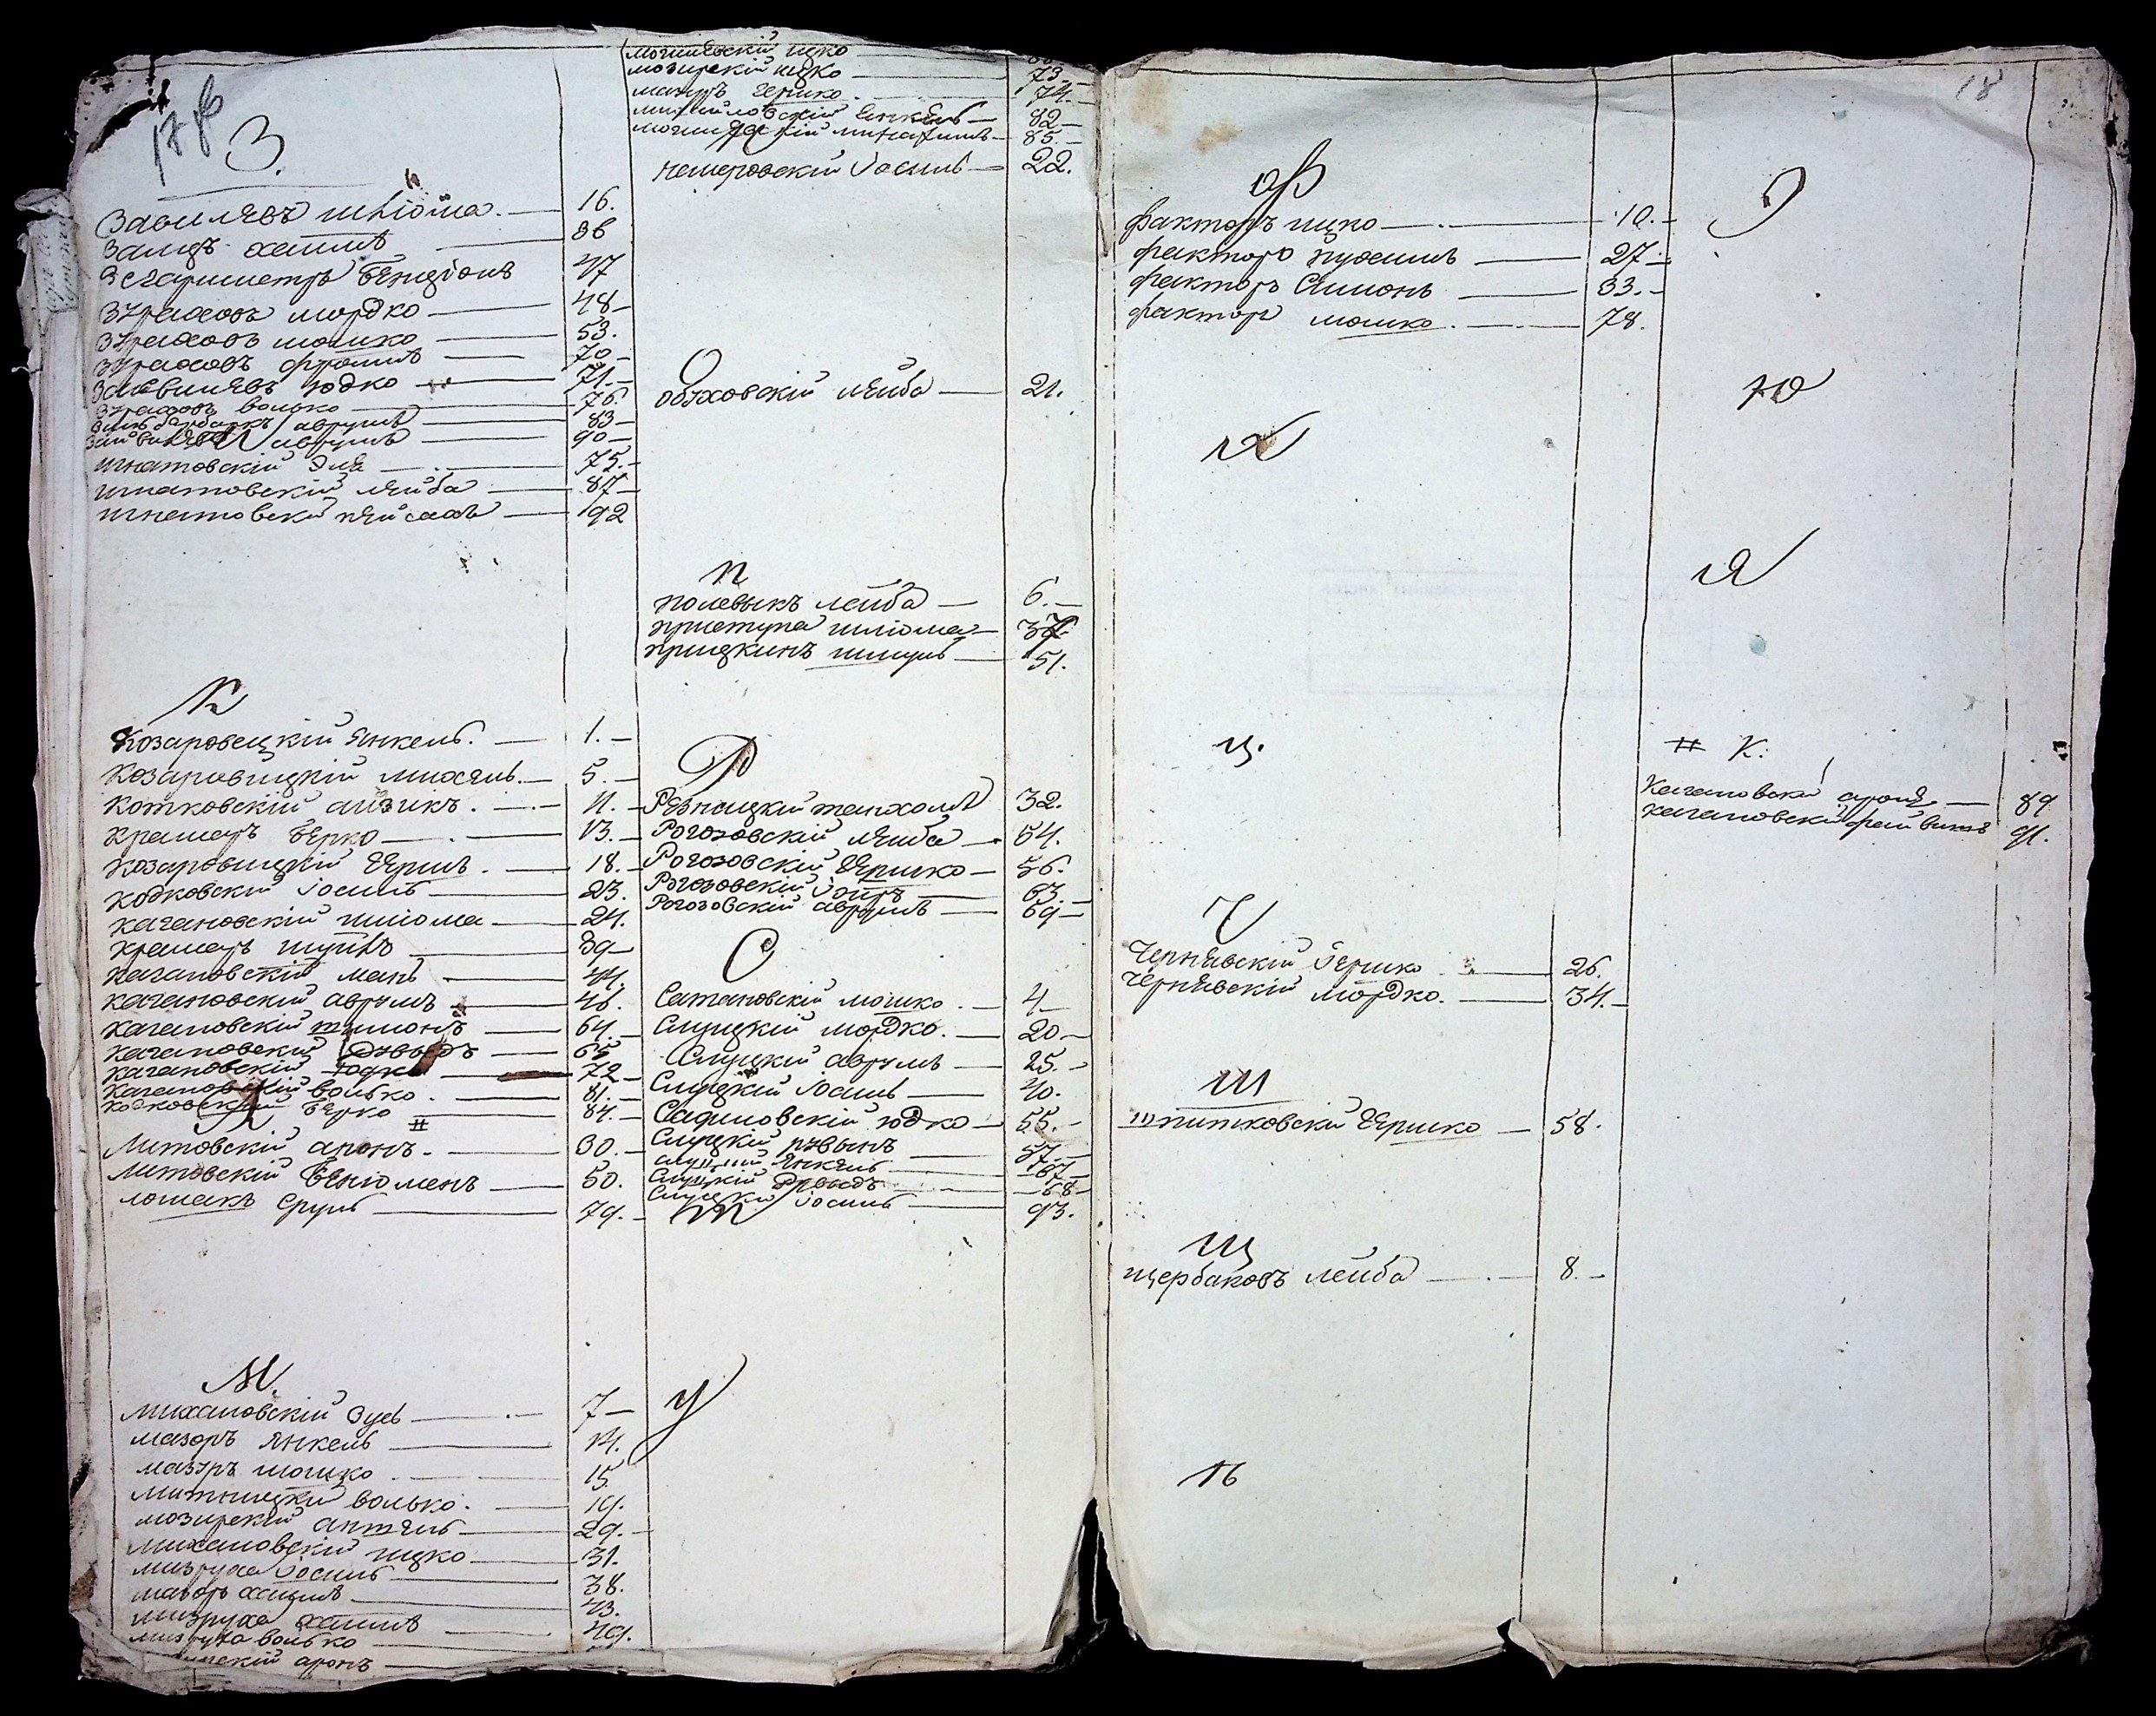 17
З.
Завилявъ шліома. — 16.
Залцъ хаимъ — 36
Зегармистръ Бенціонъ 47
Зураховъ мордко — 48 —
Зураховъ мошко — 53.
Зураховъ фроимъ — 70 —
Заивилявъ юдко — 71. —
Зураховъ волько — 76.
аврумъ — 83 —
аврумъ — 90 —
игнатовскій Эля — 75. —
игнатовскій Лейба — 87 —
игнатовскій пейсахъ — 92
К
Козаровецкій янкель. — 1. —
Козаровицкій михель. — 5. —
Котковскій айзикъ. — 11. —
Крамаръ Берко — 13. —
Козаровицкій Гершъ. — 18. —
Кодковскій Іосипъ — 23.
Кагановскій шліома — 24.
Крамаръ — 39 —
Кагановскій — 44.
Кагановскій аврумъ — 46.
Кагановскій шимонъ — 64. —
Кагановскій Дувыдъ — 65
Кагановскій Юдко — 72 —
Кагановскій волько. — 81. —
Кодковскій Берко — 84. —
#
Литовскій аронъ. — 30. —
Литовскій Беніоменъ — 50.
лошакъ Сруль — 79. —
М.
михаловскій Зусь — 7 —
мазоръ янкель — 14.
мазуръ мошко. — 15.
митницкій волько. — 19.
мозирскій аншель — 29. —
михаловскій ицко — 31.
мизруха Іосипъ — 38.
мазоръ хаимъ — 43.
мизруха хаимъ — 49.
мизруха волько —
аронъ —
могилевскій ицко
мозирскій ицко — 73 —
мазуръ Гершко. — 74. —
михайловскій янкель — 82 —
85. —
немеровскій Іосипъ — 22.
О
обуховскій лейба — 21.
П
полевыкъ лейба — 6. —
приступа шліома — 37
прицкинъ шмуль — 51.
Р
Резницкій танхомъ 32.
Рогозовскій лейба — 54.
Рогозовскій Гершко — 56.
Рогозовскій 63. —
Рогозовскій аврумъ — 69 —
С
Сатановскій мошко. — 4 —
Слуцкій мордко. — 20 —
Слуцкій аврумъ — 25. —
Слуцкій Іосипъ — 40.
Садиловскій юдко — 55. —
Слуцкій рувынъ — 57. —
слуцкій янкель — 67 —
Слуцкій — 68 —
Слуцкій Іосипъ — 93.
Т
У
18
Ф
факторъ ицко — 10. —
факторъ нухимъ — 27 —
факторъ Симонъ — 33. —
факторъ мошко. — 78.
Х
Ц.
Ч
Чернявскій Гершко — 26.
Чернявскій мордко. — 34. —
Ш
шпитковскій Гершко — 58.
Щ
щербаковъ лейба — 8. —
Ъ
Э
Ю
Я
# К:
Кагановскій аронъ — 89
кагановскій фейвишъ 91.